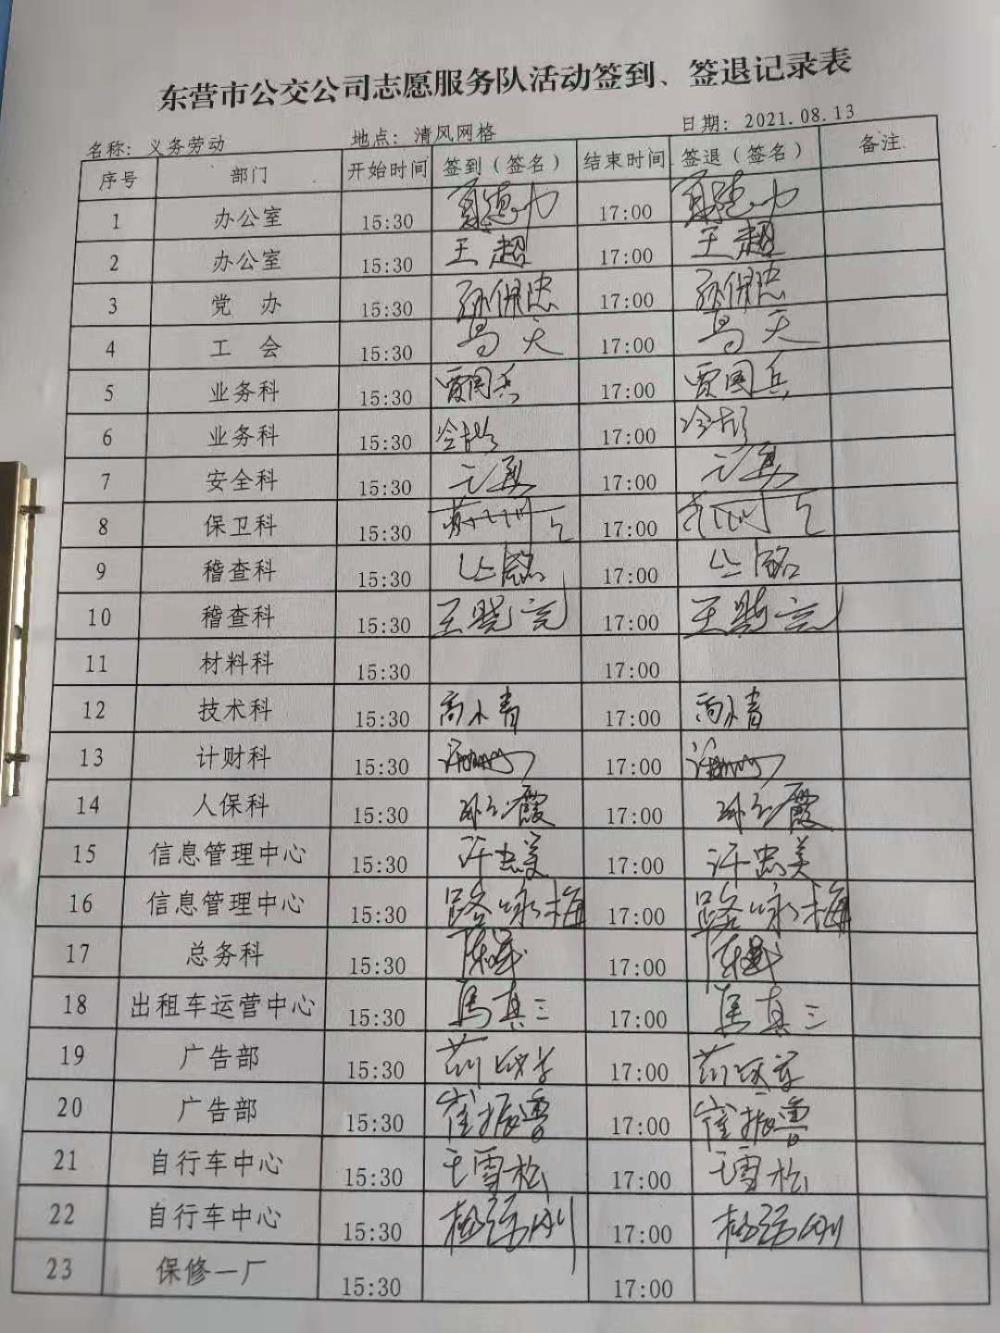 东营市公交公司志愿服务队活动签到、签退记录表
名称：义务劳动 地点：清风网格 日期：2021.08.13
序号 部门 开始时间 签到（签名） 结束时间 签退（签名） 备注
1 办公室 15:30 17:00
2 办公室 15:30 王超 17:00 王超
3 党 办 15:30 孙保忠 17:00 孙保忠
4 工 会 15:30 17:00
5 业务科 15:30 贾国兵 17:00 贾国兵
6 业务科 15:30 17:00
7 安全科 15:30 17:00
8 保卫科 15:30 17:00
9 稽查科 15:30 17:00
10 稽查科 15:30 王晓亮 17:00 王晓亮
11 材料科 15:30 17:00
12 技术科 15:30 高小青 17:00 高小青
13 计财科 15:30 17:00
14 人保科 15:30 17:00
15 信息管理中心 15:30 许忠美 17:00 许忠美
16 信息管理中心 15:30 路咏梅 17:00 路咏梅
17 总务科 15:30 17:00
18 出租车运营中心 15:30 马真三 17:00 马真三
19 广告部 15:30 17:00
20 广告部 15:30 崔振鲁 17:00 崔振鲁
21 自行车中心 15:30 王雪松 17:00 王雪松
22 自行车中心 15:30 17:00
23 保修一厂 15:30 17:00